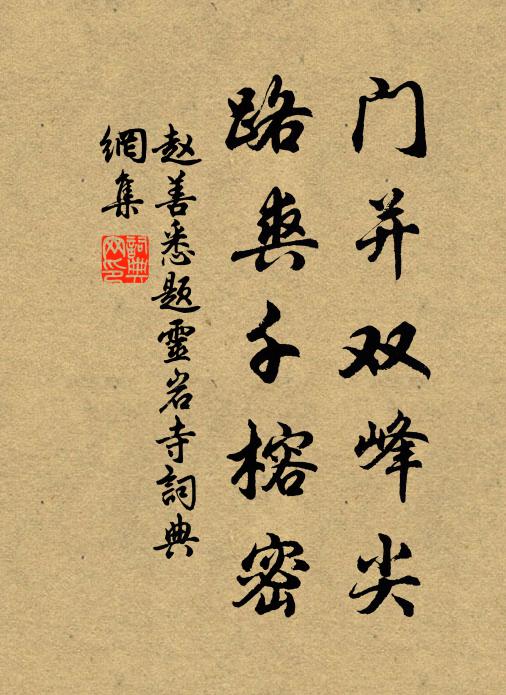 门并双峰尖
路爽千榕密
赵善悉题靈岩寺詞典
網集
詞典网印